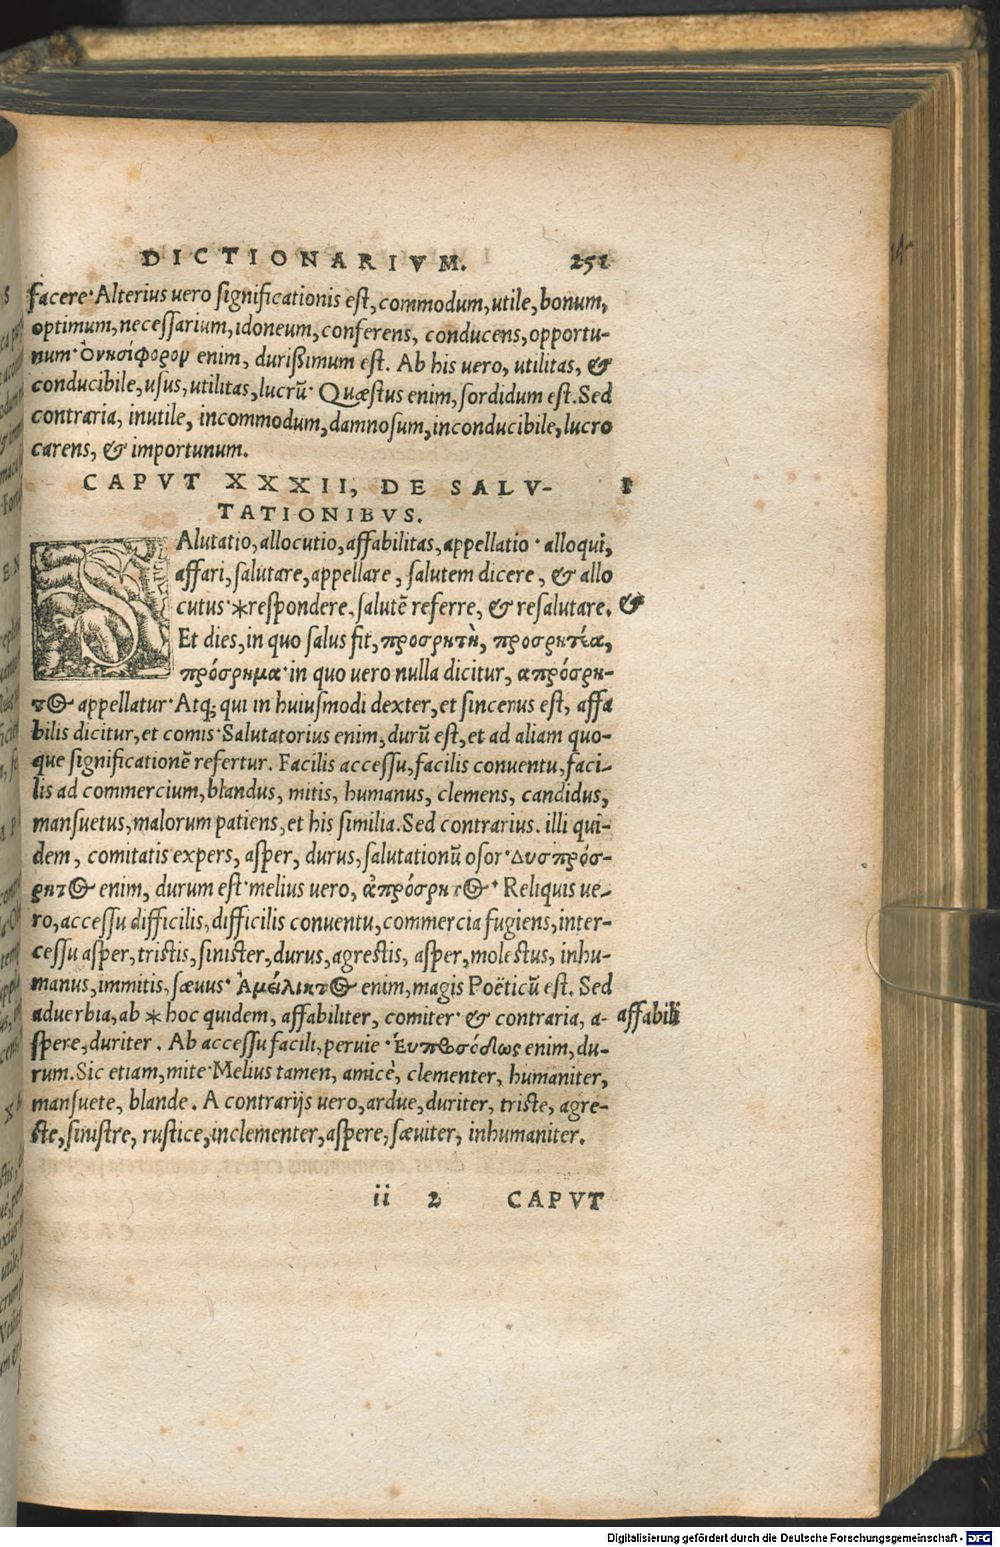 DICTIONARIVM. 251
facere·Alterius uero significationis est,commodum,utile,bonum,
optimum,necessarium,idoneum,conferens, conducens,opportu-
num·Ὀνησίφορον enim, durißimum est. Ab his uero, utilitas, &
conducibile,usus,utilitas,lucrū· Quæstus enim,sordidum est.Sed
contraria, inutile, incommodum,damnosum,inconducibile,lucro
carens, & importunum.
CAPVT XXXII, DE SALV-
TATIONIBVS.
SAlutatio,allocutio,affabilitas,appellatio·alloqui,
affari,salutare,appellare, salutem dicere, & allo
cutus·*respondere, salutē referre, & resalutare. &
Et dies,in quo salus fit,προσρητὴ, προσρητέα,
πρόσρημα·in quo uero nulla dicitur, απρόσρη-
τος appellatur·Atq; qui in huiusmodi dexter,et sincerus est, affa
bilis dicitur,et comis·Salutatorius enim,durū est,et ad aliam quo-
que significationē refertur. Facilis accessu,facilis conuentu,faci-
lis ad commercium,blandus, mitis, humanus, clemens, candidus,
mansuetus,malorum patiens,et his similia.Sed contrarius. illi qui-
dem, comitatis expers, asper, durus, salutationū osor·Δυσπρόσ-
ρητος enim, durum est·melius uero, ἀπρόσρητος· Reliquis ue-
ro,accessu difficilis,difficilis conuentu,commercia fugiens,inter-
cessu asper,tristis,sinister,durus,agrestis, asper,molestus, inhu-
manus,immitis,sæuus· Ἀμείλικτος enim,magis Poëticū est. Sed
aduerbia,ab * hoc quidem, affabiliter, comiter· & contraria, a- affabili
spere,duriter. Ab accessu facili,peruie·Ἐυπροσόδως enim,du-
rum.Sic etiam,mite·Melius tamen, amicè, clementer, humaniter,
mansuete, blande. A contrarijs uero,ardue,duriter, triste, agre-
ste,sinistre, rustice,inclementer,aspere,sæuiter, inhumaniter.
ii 2 CAPVT
Digitalisierung gefördert durch die Deutsche Forschungsgemeinschaft - DFG